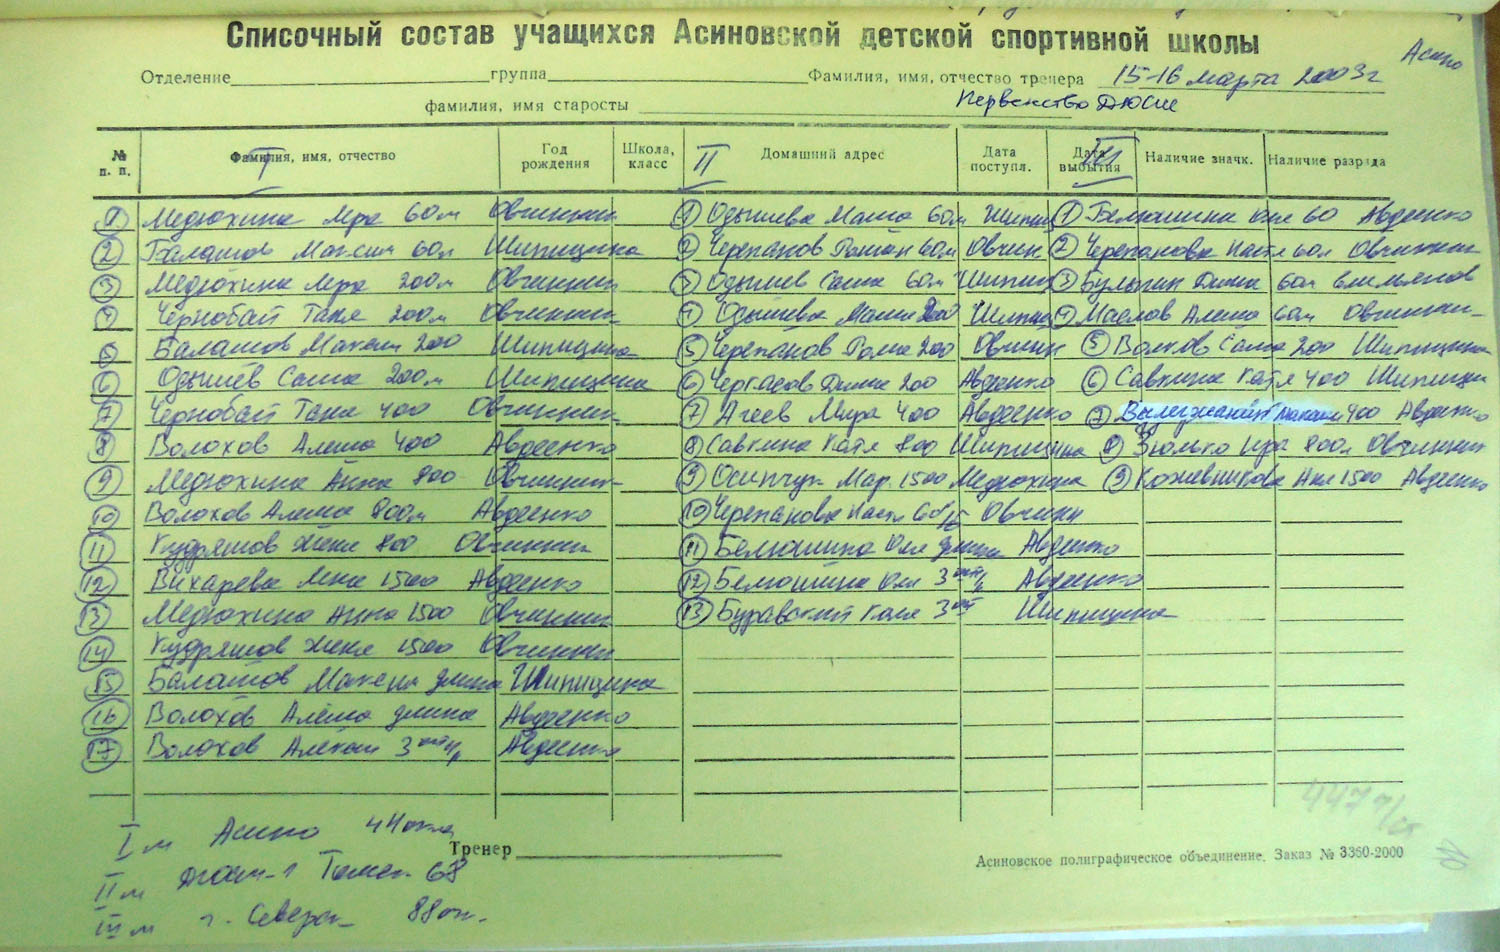 Списочный состав учащихся Асиновской детской спортивной школы
Асино
Отделение группа Фамилия, имя, отчество тренера 15-16 марта 2003г
фамилия, имя старосты Первенство ДЮСШ
№ п. п. Фамилия, имя, отчество Год рождения Школа, класс Домашний адрес Дата поступл. Дата выбытия Наличие значк. Наличие разряда
I II III
1 Медюхина Ира 60м Овчинник 1 Одышева Маша 60м Шипиц 1 Белюшина Оля 60 Авдеенко
2 Балашов Максим 60м Шипицина 2 Черепанов Роман 60м Овчин 2 Черепанова Настя 60м Овчинник
3 Медюхина Ира 200м Овчинник 3 Одышев Саша 60м Шипиц 3 Булыгин Дима 60м
4 Чернобай Таня 200м Овчинник 4 Одышева Маша 200 Шипиц 4 Маслов Алеша 60м Овчинник
5 Балашов Максим 200 Шипицина 5 Черепанов Рома 200 Овчин 5 Волков Саша 200 Шипицина
6 Одышев Саша 200м Шипицина 6 Черкасов Дима 200 Авдеенко 6 Савкина Катя 400 Шипици
7 Чернобай Таня 400 Овчинник 7 Агеев 400 Авдеенко 7 Вылегжанин Максим 400 Авдеенко
8 Волохов Алеша 400 Авдеенко 8 Савкина Катя 800 Шипицина 8 Зюлько Ира 800м Овчинник
9 Медюхина Анна 800 Овчинник 9 Осипчук Мар. 1500 Медюхина 9 Кожевникова Аня 1500 Авдеенко
10 Волохов Алеша 800м Авдеенко 10 Черепанова Настя 60 б/б Овчинн
11 Кудряшов Женя 800 Овчинник 11 Белюшина Оля длина Авдеенко
12 Вихарева 1500 Авдеенко 12 Белюшина Оля Авдеенко
13 Медюхина Анна 1500 Овчинник 13 Буравский Коля Шипицина
14 Кудряшов Женя 1500 Овчинник
15 Балашов Максим длина Шипицина
16 Волохов Алёша длина Авдеенко
17 Волохов Алексей Авдеенко
I м Асино 44 очка
Тренер
II м Томск 68
III м г. Северск 88 оч.
Асиновское полиграфическое объединение. Заказ № 3360-2000